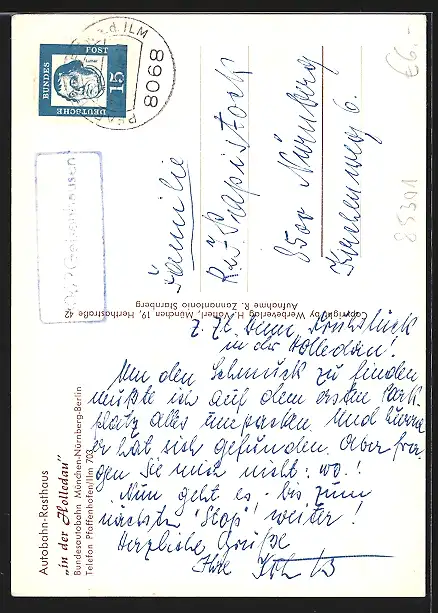 Autobahn-Rasthaus
„in der Holledau"
Bundesautobahn München-Nürnberg-Berlin
Telefon Pfaffenhofen/Ilm 703
Z. Zt. beim Frühstück
in der Holledau!
Um den Schmuck zu finden
mußte ich auf dem ersten Park
platz alles umpacken. Und hurra
er hat sich gefunden. Aber fra-
gen Sie mich nicht: wo!
Nun geht es - bis zum
nächsten "Stop" weiter!
Herzliche Grüße
Ihre
Copyright by Werbeverlag H. München 19, Herthastraße 42
Aufnahme K. Zannantonio Starnberg
Familie
8500 Nürnberg
Kirchenweg 6.
DEUTSCHE BUNDESPOST
15
Luther
8068
d. ILM
Geisenhausen
€6,-
85301